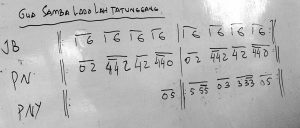 GUA SAMBA LADO LAH TATUNGGANG
JB ||: 16 16 16 16 | 16 16 16 16 :||
PN ||: 02 442 42 440 | 02 442 42 440 :||
PNY ||: 05 | 5 55 03 333 05 :||